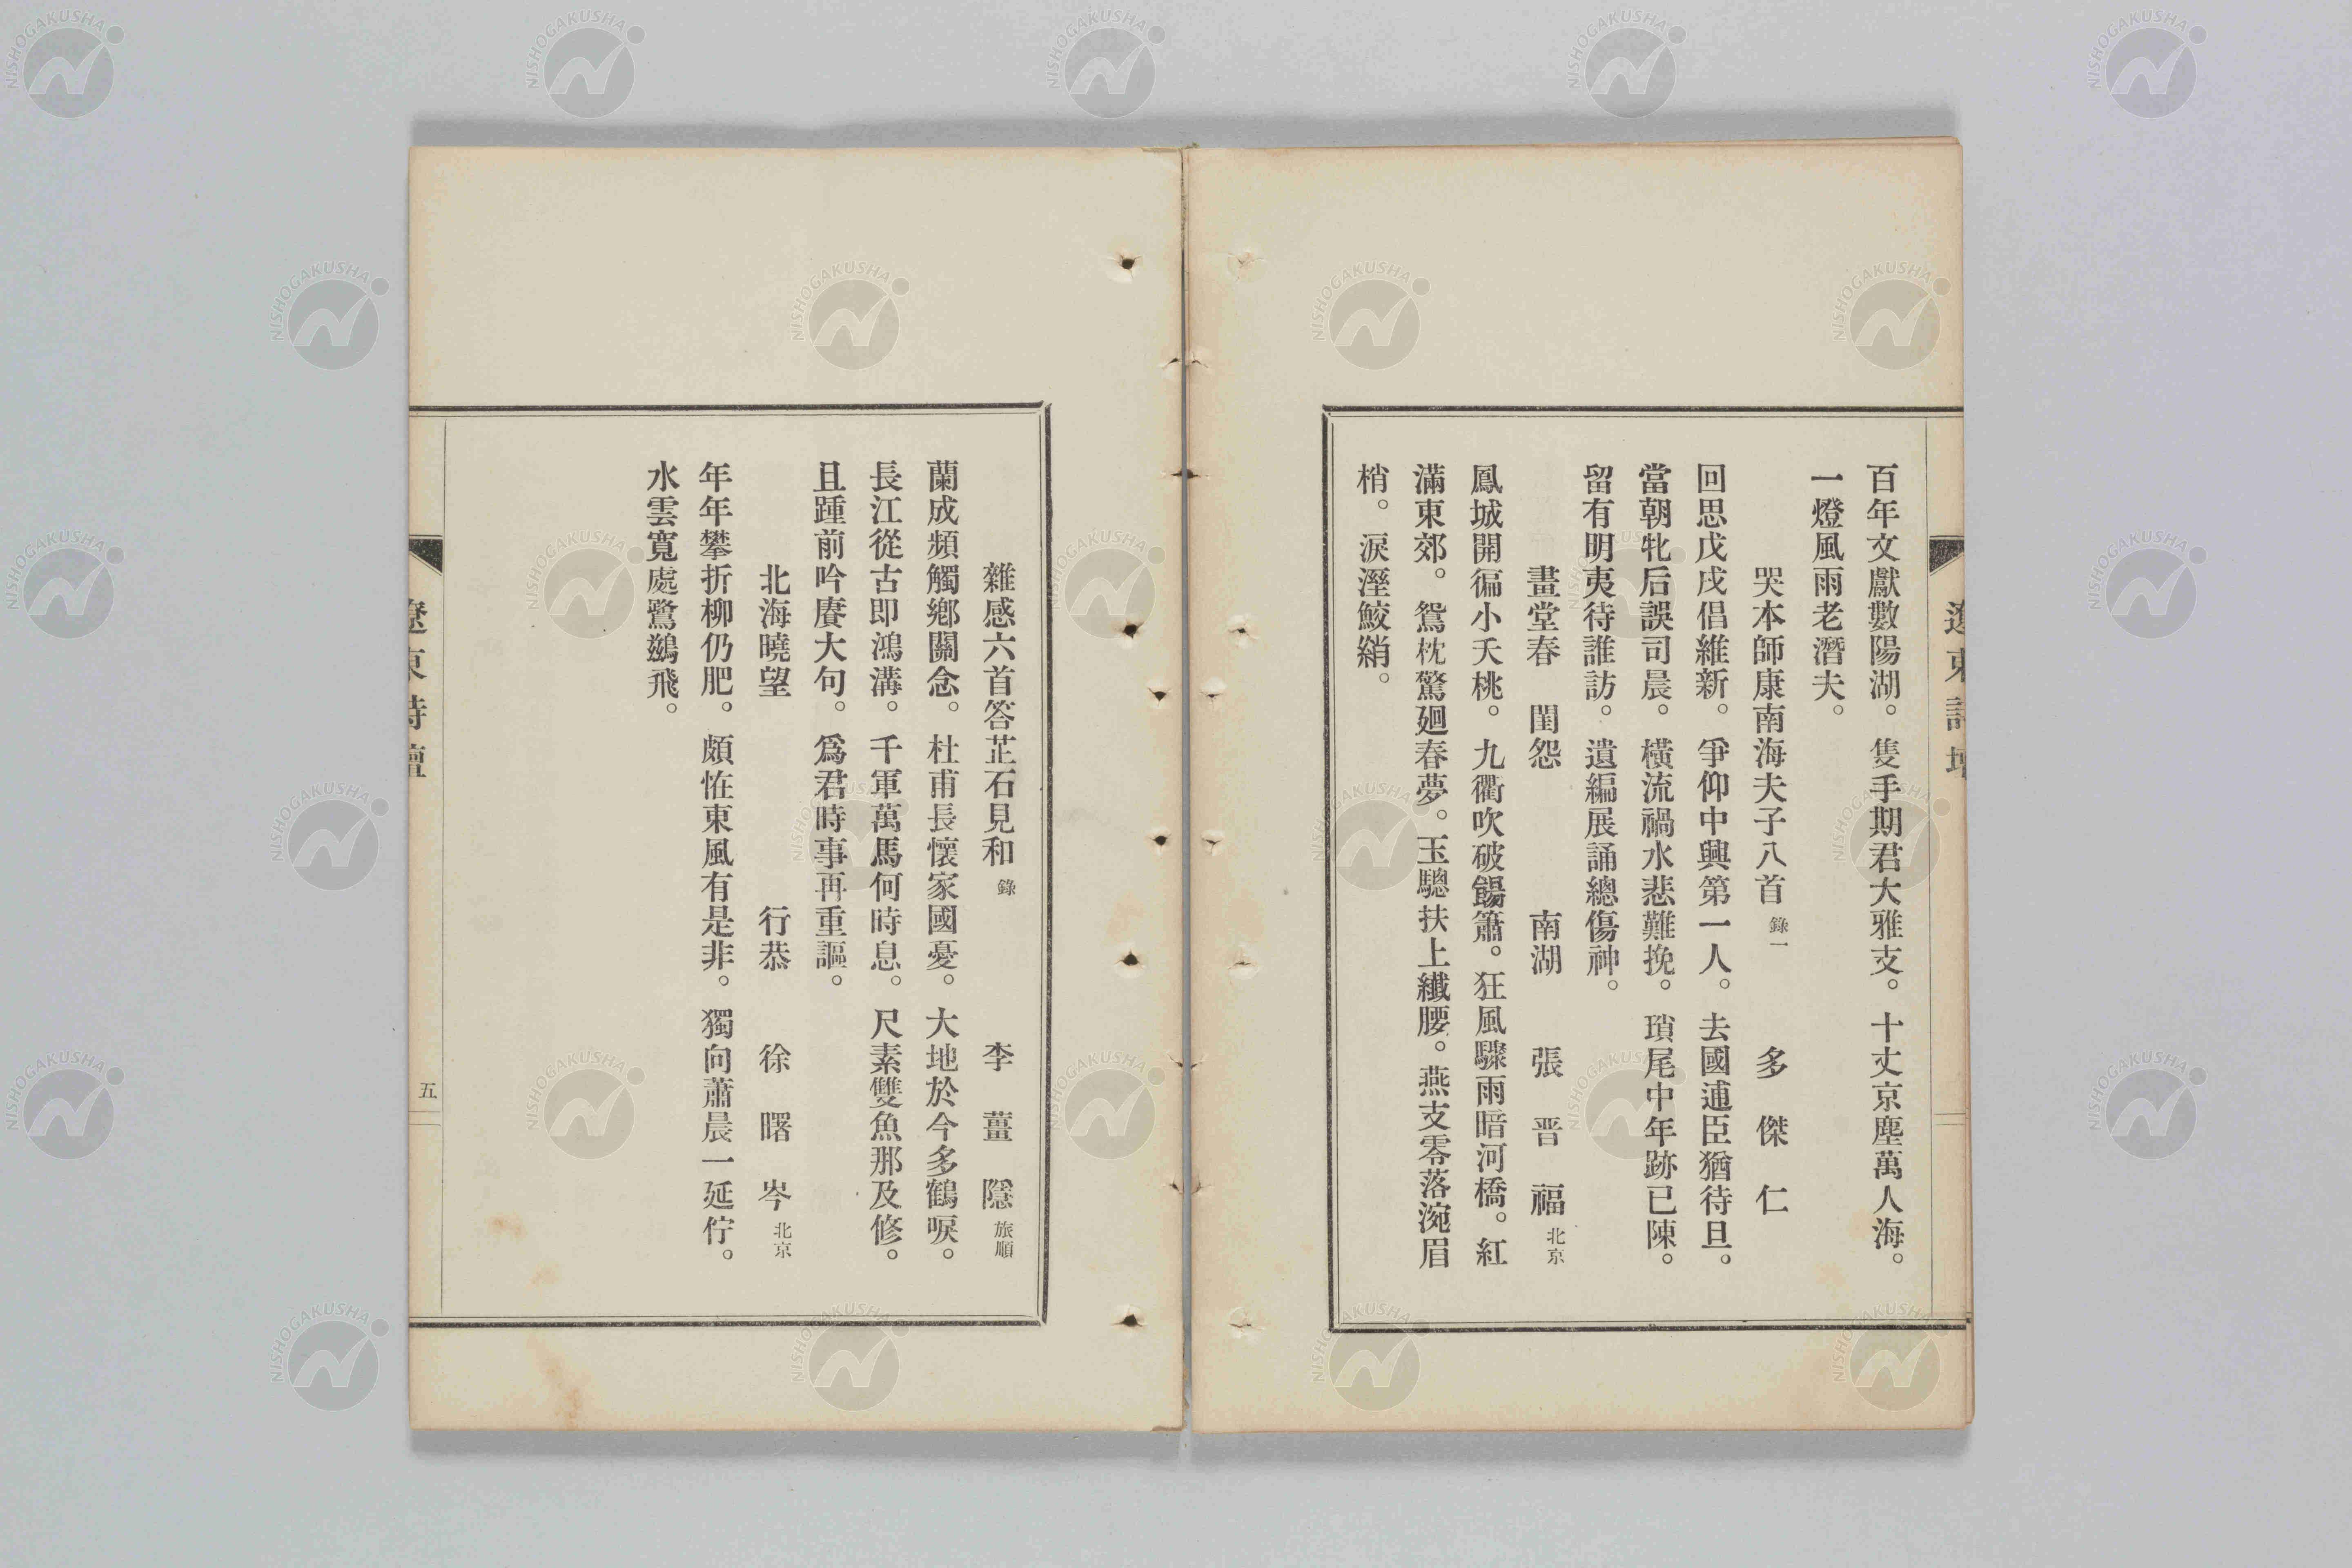 遼東詩壇
百年文獻數陽湖。隻手期君大雅支。十丈京塵萬人海。
一燈風雨老潛夫。
哭本師康南海夫子八首 錄一 多傑仁
回思戊戌倡維新。爭仰中興第一人。去國逋臣猶待旦。
當朝牝后誤司晨。橫流禍水悲難挽。瑣尾中年跡已陳。
留有明夷待誰訪。遺編展誦總傷神。
畫堂春 閨怨 南湖 張晋福 北京
鳳城開徧小夭桃。九衢吹破餳簫。狂風驟雨暗河橋。紅
滿東郊。鴛枕驚廻春夢。玉驄扶上纖腰。燕支零落涴眉
梢。淚溼鮫綃。
雜感六首答芷石見和 錄 李薑隱 旅順
蘭成頻觸鄉關念。杜甫長懷家國憂。大地於今多鶴唳。
長江從古即鴻溝。千軍萬馬何時息。尺素雙魚那及修。
且踵前吟賡大句。爲君時事再重謳。
北海曉望 行恭 徐曙岑 北京
年年攀折柳仍肥。頗恠東風有是非。獨向蕭晨一延佇。
水雲寬處鷺鷀飛。
遼東詩壇
五
NISHOGAKUSHA